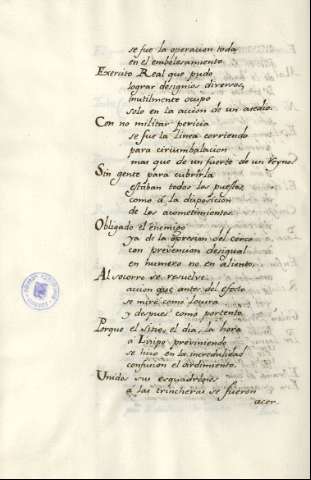 se fue la operacion toda
en el embelesamiento
Exercito Real que pudo
lograr designios diversos,
inutilmente ocupo
solo en la accion de un asedio.
Con no militar pericia
se fue la linea corriendo
para circumbalacion
mas que de un fuerte de un reyno
Sin gente para cubrirla
estaban todos los puestos
como á la disposicion
de los acometimientos.
Obligado el enemigo
ya de la opresion del cerco
con prevencion desigual
en numero no en alientos.
Al socorro se resuelve
accion que antes del efecto
se miró como locura
y despues como portento
Porque el sitio, el dia, la hora
a previniendo
se hizo en la incredulidad
confusion el ardimiento.
Unidos sus esquadrones
a las trincheras se fueron
acer